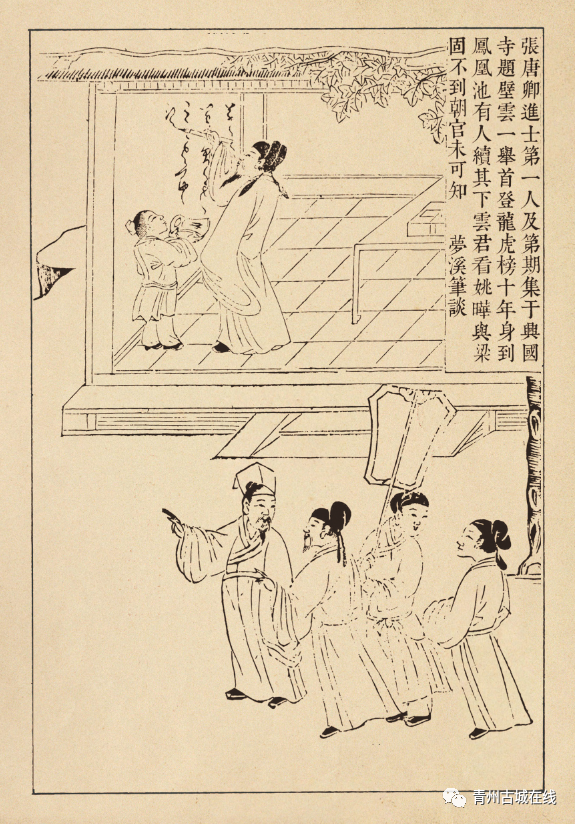 張唐卿進士第一人及第期集于興國
寺題壁雲一舉首登龍虎榜十年身到
鳳凰池有人續其下雲君看姚曄與梁
固不到朝官未可知 夢溪筆談
青州古城在线